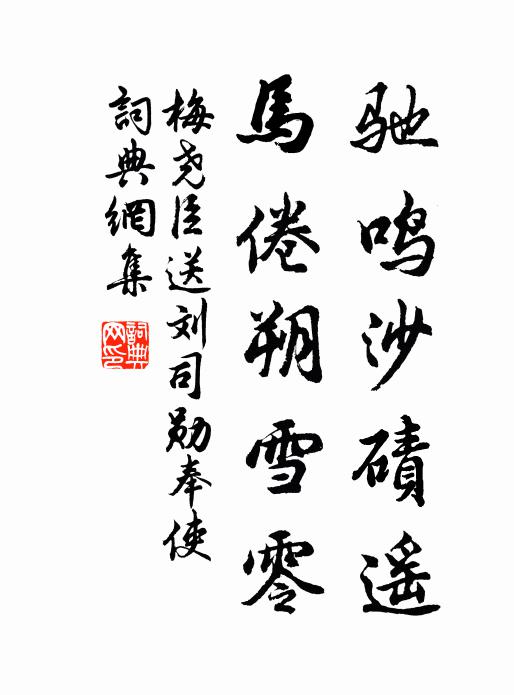 驰鸣沙碛遥
馬倦朔雪零
梅尧臣送刘司勋奉使
詞典網集
詞典网印